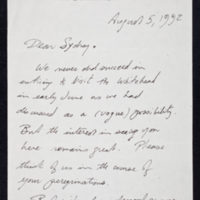 August 5, 1992
Dear Sydney,
We never did succeed in
enticing to visit the Whitehead
in early June as we had
discussed as a (vague) possibility.
But the interest in seeing you
here remains great. Please
think of us in the course of
your peregrinations.